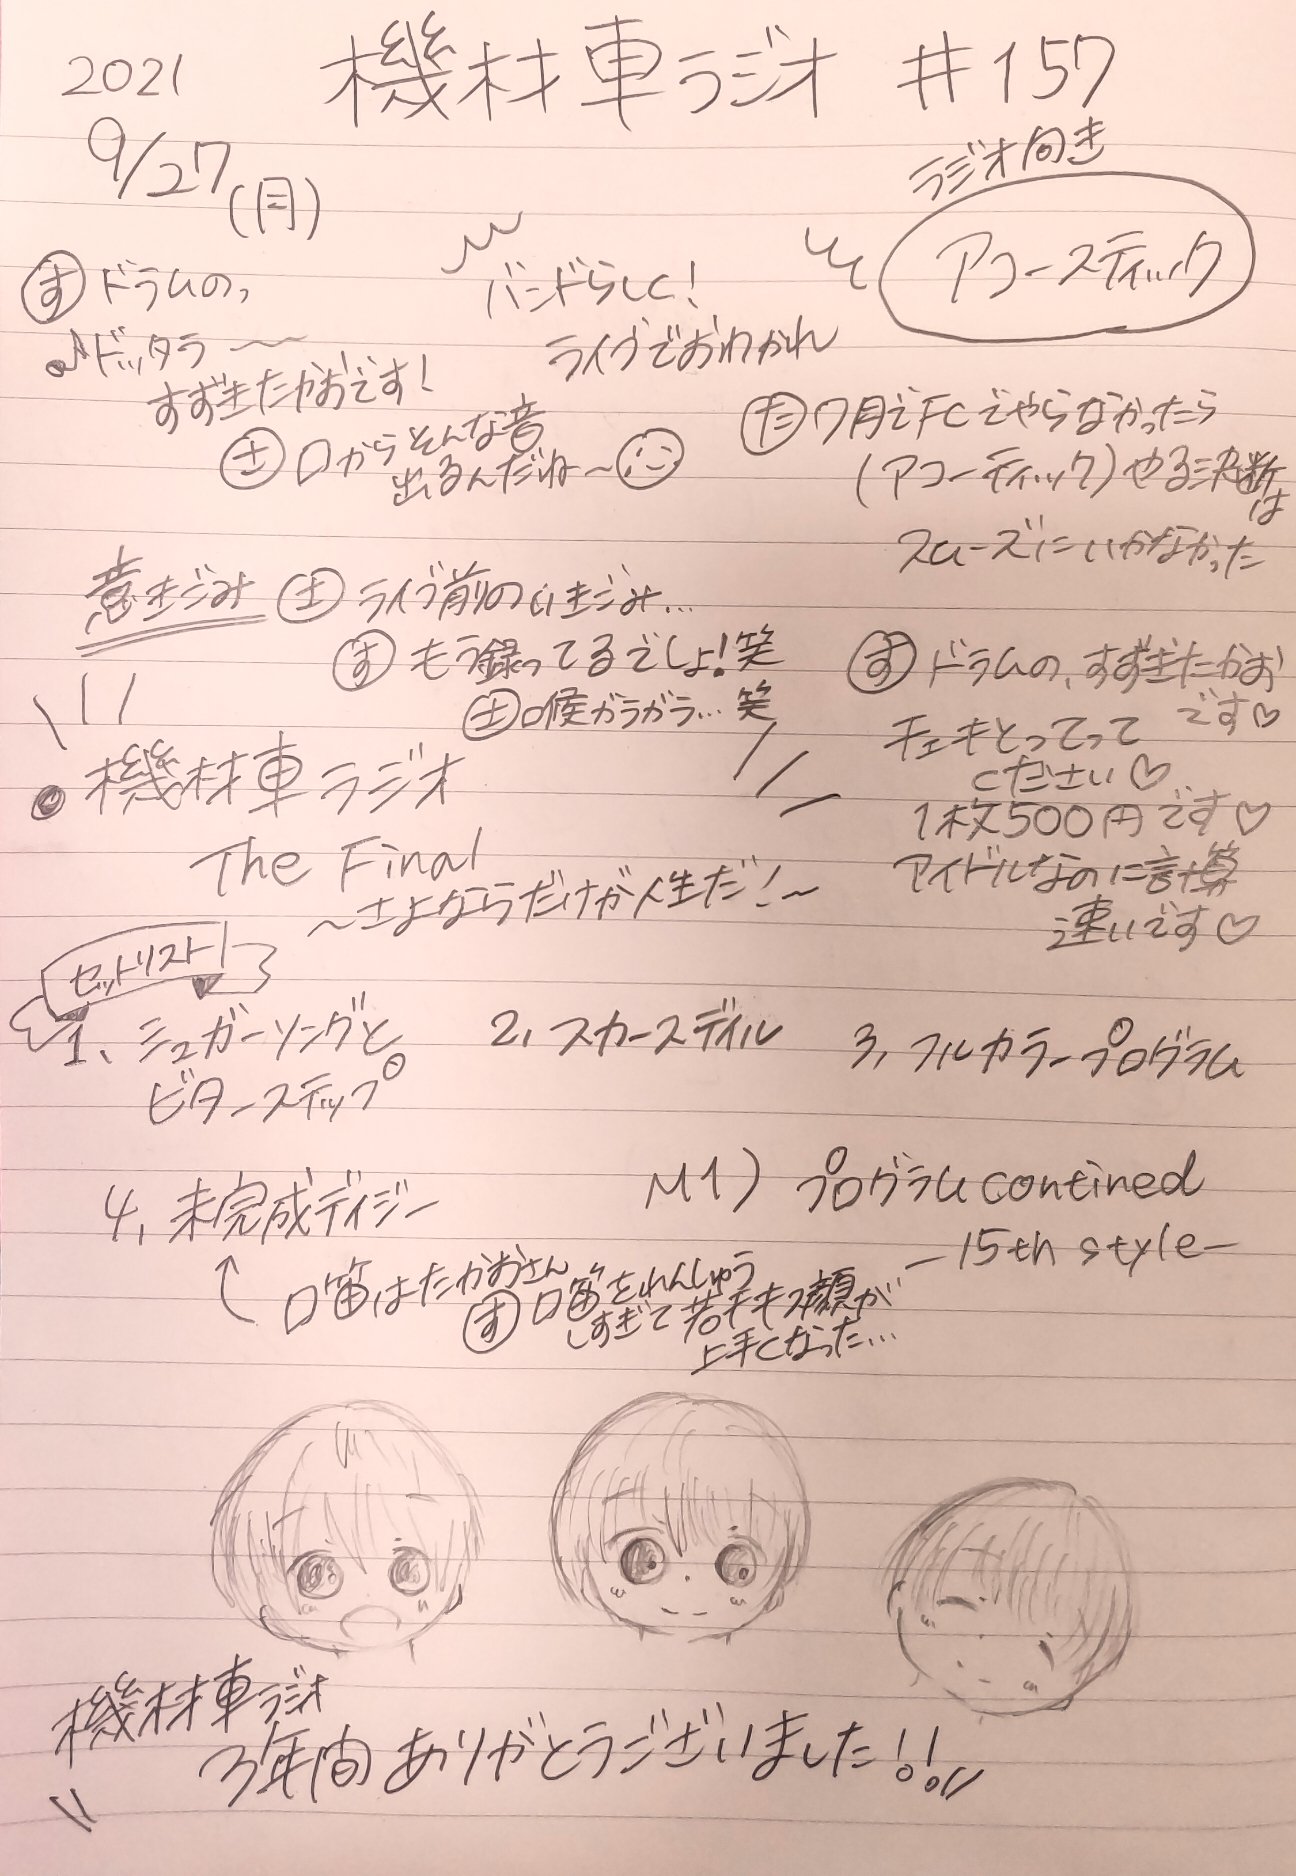 2021
9/27(月)
機材車ラジオ #157
ラジオ向き
アコースティック
バンドらしく!
ライブでおわかれ
す ドラムの、
♪ドッタラ〜
すずきたかおです!
さ 口からそんな音
出るんだね〜
た 7月でFCでやらなかったら
(アコーティック)やる決断は
スムーズにいかなかった
意きごみ
さ ライブ前のいきごみ…
す もう録ってるでしょ!笑
さ 喉ガラガラ…笑
す ドラムの、すずきたかお
です♡
チェキとってって
ください♡
1枚500円です♡
アイドルなのに計算
速いです♡
機材車ラジオ
The Final
〜さよならだけが人生だ!〜
セットリスト!
1、シュガーソングと
ビターステップ
2, スカースデイル
3, フルカラープログラム
4, 未完成デイジー
M1) プログラムcontined
-15th style-
口笛はたかおさん
す 口笛をれんしゅう
しすぎて若干キス顔が
上手くなった…
機材車ラジオ
3年間ありがとうございました!!